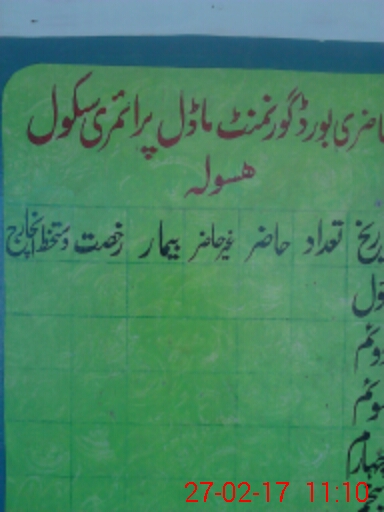 حاضری بورڈ گورنمنٹ ماڈل پرائمری سکول
ھسولہ
تاریخ تعداد حاضر غیر حاضر بیمار رخصت دستخط انچارج
اول
دوئم
سوئم
چہارم
پنجم
27-02-17 11:10